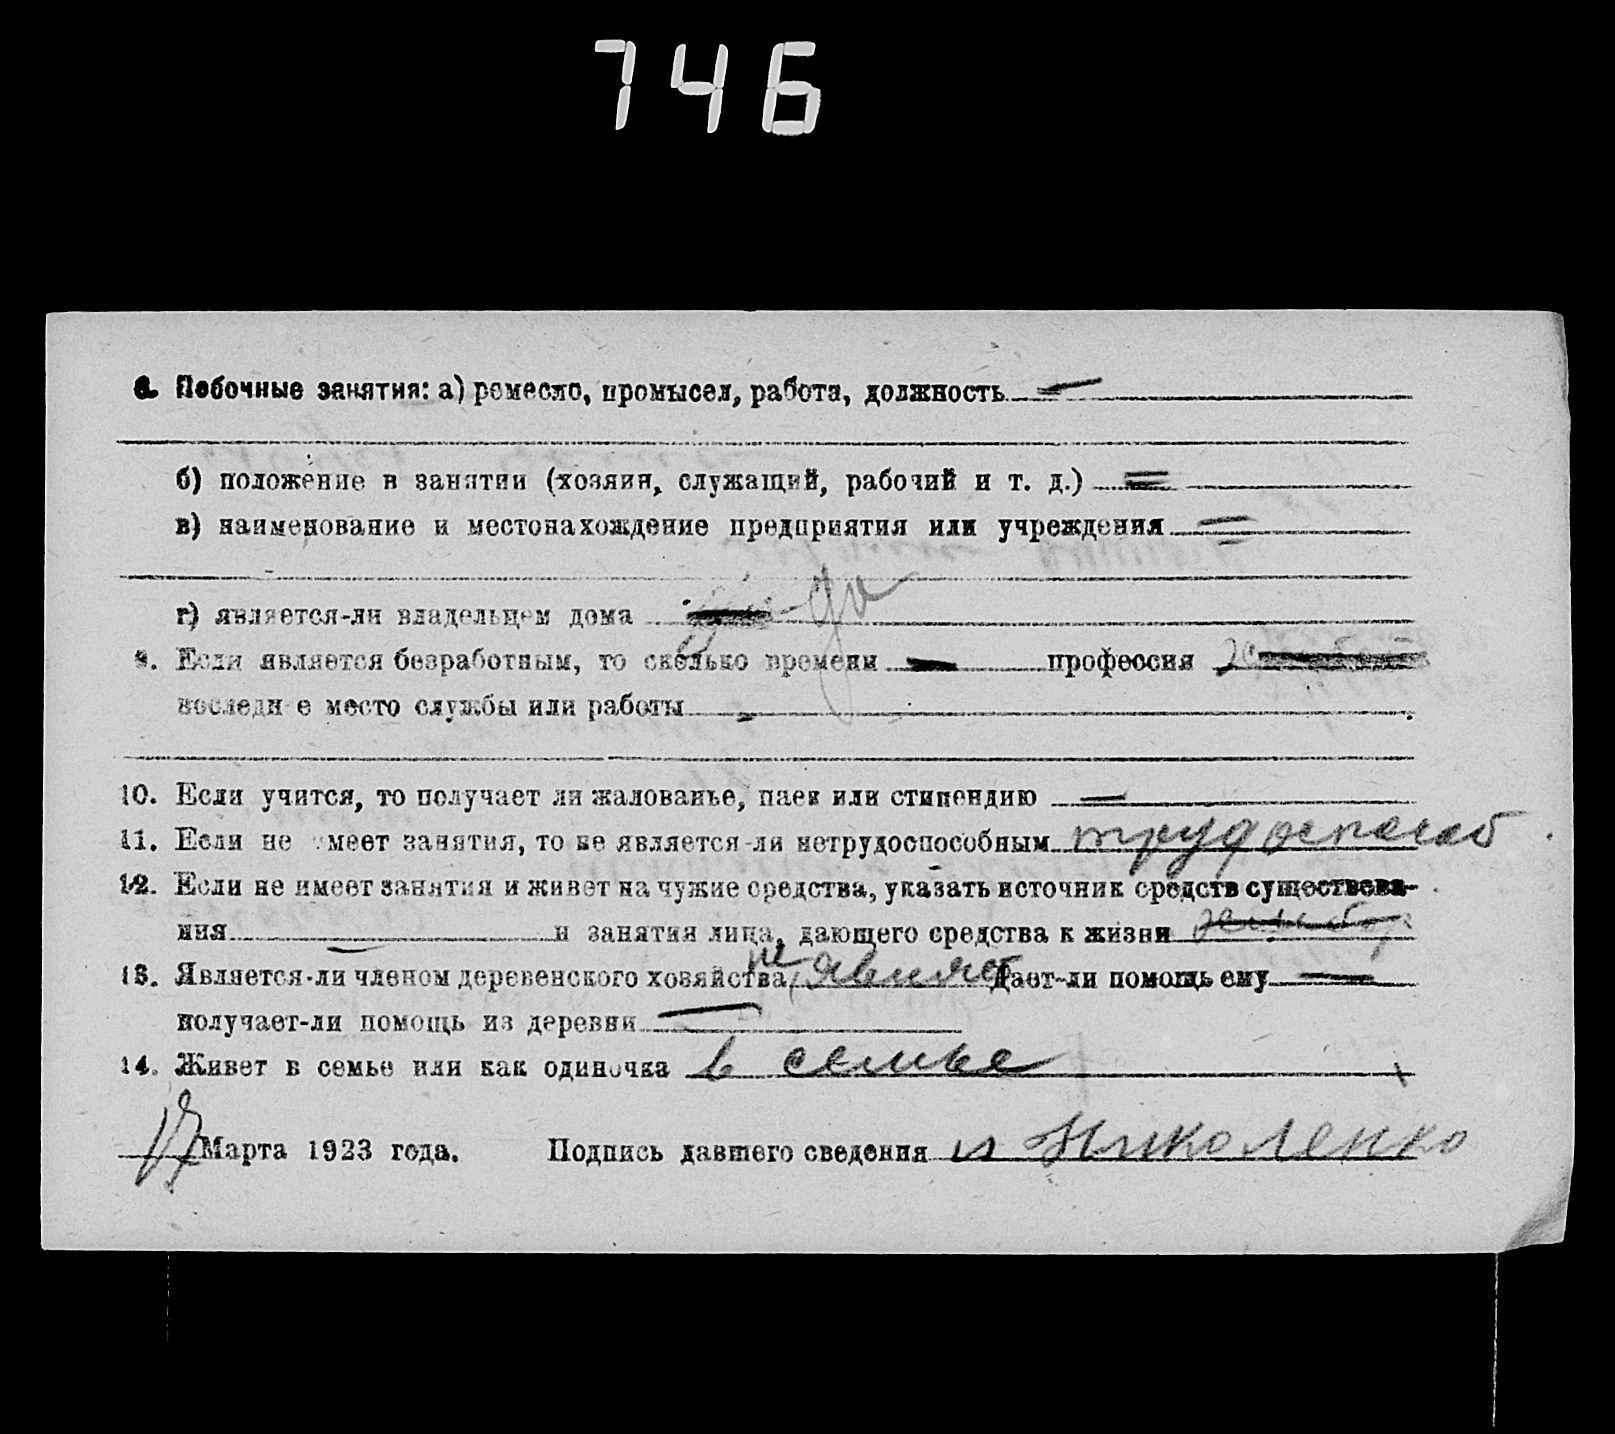 746
8. Побочные занятия: а) ремесло, промысел, работа, должность —
б) положение в занятии (хозяин, служащий, рабочий и т. д.) =
в) наименование и местонахождение предприятия или учреждения =
г) является-ли владельцем дома да
9. Если является безработным, то сколько времени — профессия
последн е место службы или работы -
10. Если учится, то получает ли жалованье, паек или стипендию —
11. Если не имеет занятия, то не является-ли нетрудоспособным трудоспособ
12. Если не имеет занятия и живет на чужие средства, указать источник средств существова-
ния — и занятия лица, дающего средства к жизни
13. Является-ли членом деревенского хозяйства не являяет Дает-ли помощь ему —
получает-ли помощь из деревни —
14. Живет в семье или как одиночка в семье
17 Марта 1923 года. Подпись давшего сведения и Николенко